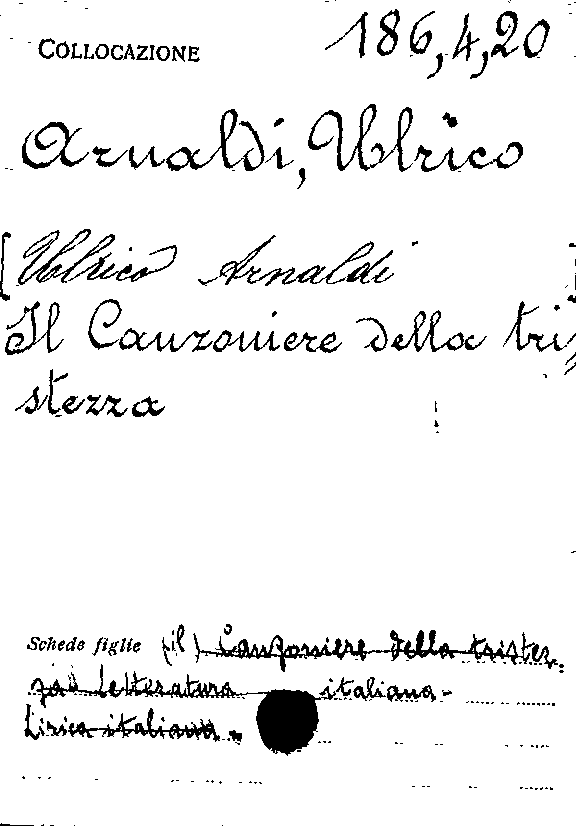 COLLOCAZIONE 186,4,20
Arnaldi, Ulrico
[Ulrico Arnaldi]
Il Canzoniere della tri-
stezza
Schede figlie (il) Canzoniere della tristez-
za - Letteratura italiana -
Lirica italiana -